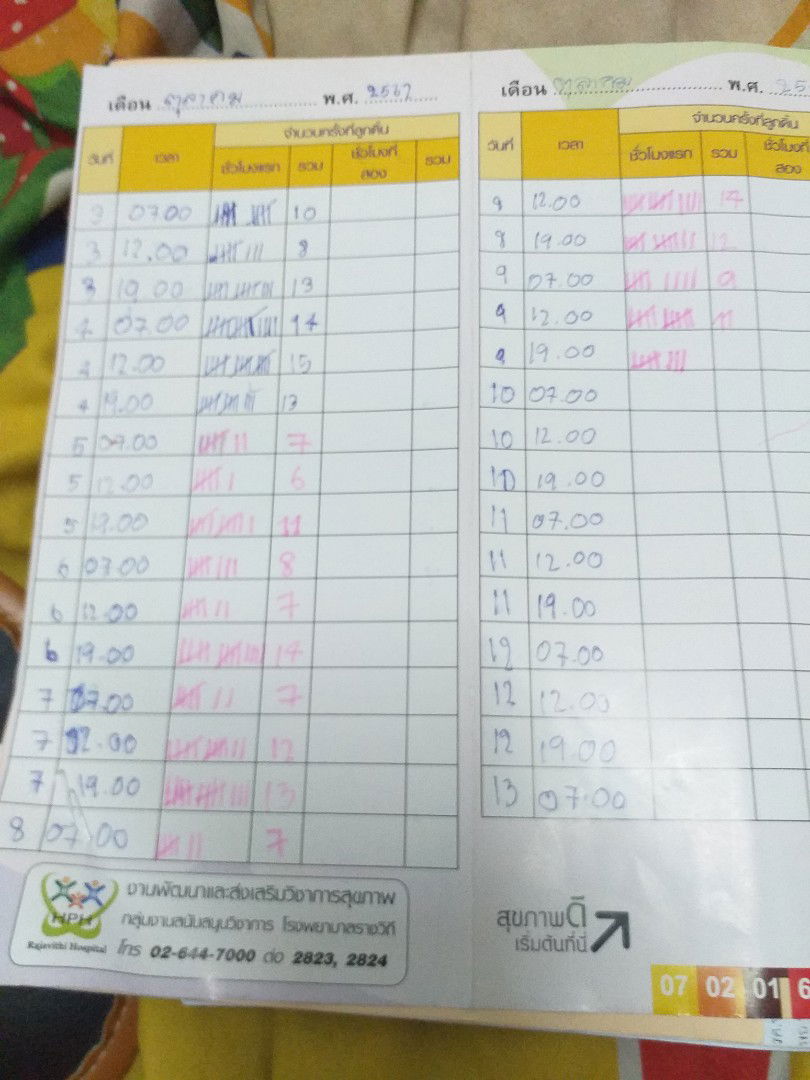 เดือน ตุลาคม พ.ศ. 2567
วันที่ เวลา จำนวนครั้งที่ลูกดิ้น
ชั่วโมงแรก รวม ชั่วโมงที่สอง รวม
3 07.00 10
3 12.00 8
3 19.00 13
4 07.00 14
4 12.00 15
4 19.00 13
5 07.00 7
5 12.00 6
5 19.00 11
6 07.00 8
6 12.00 7
6 19.00 14
7 07.00 7
7 12.00 12
7 19.00 13
8 07.00 7
HPH
Rajavithi Hospital
งานพัฒนาและส่งเสริมวิชาการสุขภาพ
กลุ่มงานสนับสนุนวิชาการ โรงพยาบาลราชวิถี
โทร 02-644-7000 ต่อ 2823, 2824
เดือน ตุลาคม พ.ศ. 25
วันที่ เวลา จำนวนครั้งที่ลูกดิ้น
ชั่วโมงแรก รวม ชั่วโมงที่สอง
12.00 14
8 19.00 12
9 07.00 9
9 12.00 11
9 19.00
10 07.00
10 12.00
10 19.00
11 07.00
11 12.00
11 19.00
12 07.00
12 12.00
12 19.00
13 07.00
สุขภาพดี
เริ่มต้นที่นี่
07 02 01 6